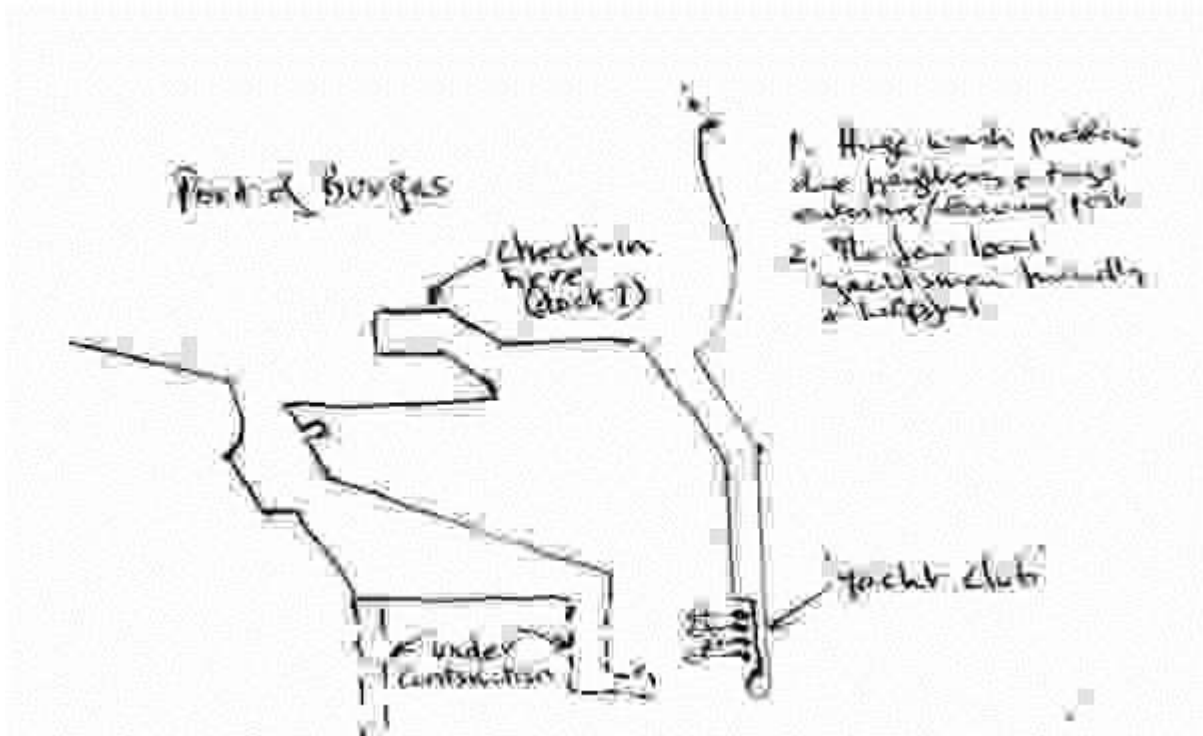 Port of Burgas
check-in
here
(dock 1)
1. Huge wash problem
due freighters & tugs
entering/leaving port
2. The few local
yachtsmen friendly
& helpful
Yacht Club
under
construction